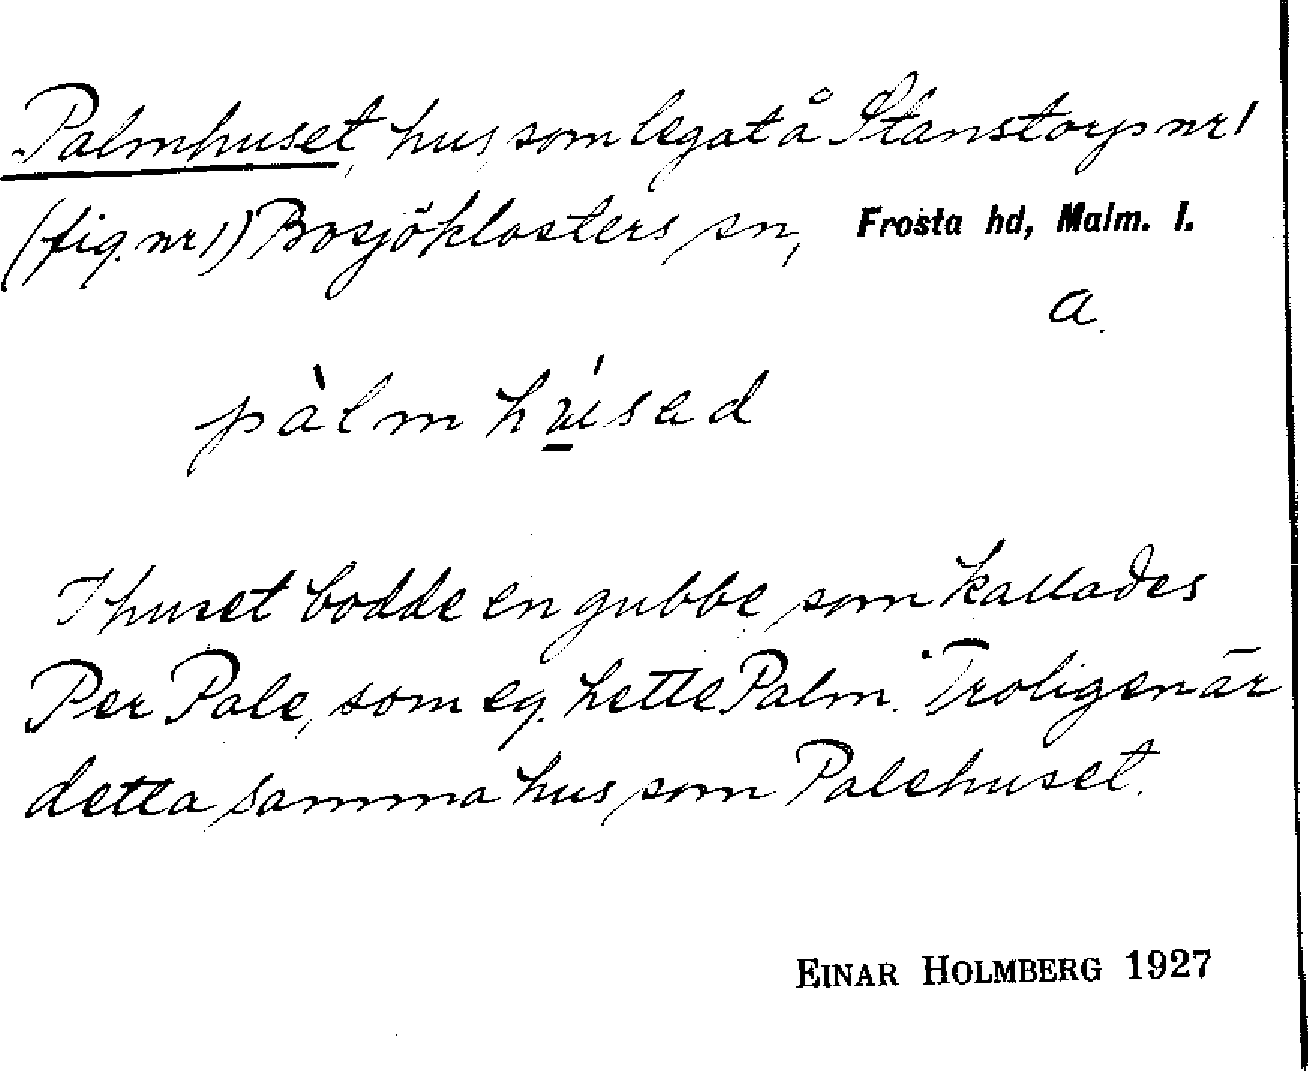 Palmhuset, hus som legat å Stanstorp nr 1
(fig. nr 1) Bosjöklosters sn, Frosta hd, Malm. l.
a.
pàlmhúsad
I huset bodde en gubbe, som kallades
Per Pale, som eg. hette Palm. Troligen är
detta samma hus som Palehuset.
EINAR HOLMBERG 1927